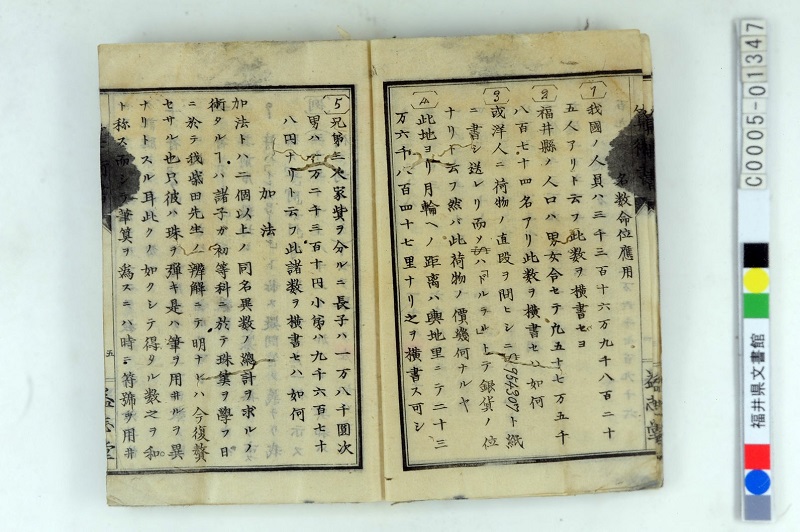 名数命位應用
1 我國ノ人員ハ三千三百十六万九千八百二十
五人アリト云フ此数ヲ横書セヨ
2 福井縣ノ人口ハ男女合セテ九五十七万五千
八百七十四名アリ此数ヲ横書セハ如何
3 或洋人ニ荷物ノ直段ヲ問ヒシニ954307ト紙
ニ書シ送レリ而ソハドルラルセントテ銀貨ノ位
ナリト云フ然バ此荷物ノ價幾何ナルヤ
4 此地ヨリ月輪ヘノ距離ハ輿地里ニテ二十三
万六千八百四十七里ナリ之ヲ横書ス可シ
5 兄弟三人家貲ヲ分ルニ長子ハ一万八千圓次
男ハ一万二千三百十円小弟ハ九千六百七十
八円ナリト云フ此諸数ヲ横書セハ如何
加法
加法トハ二個以上ノ同名異数ノ總計ヲ求ルノ
術タルヿハ諸子ガ初等科ニ於テ珠筭ヲ學フ日
ニ於テ我柴田先生ノ辨解ニテ明ナレハ今復贅
セサル也只彼ハ珠ヲ彈キ是ハ筆ヲ用ルヲ異
ナリトスル耳此クノ如クシテ得タル数之ヲ和
ト称ス而シテ筆筭ヲ為スニハ時ニ符號ヲ用非
五
福井県文書館
C0005-01347